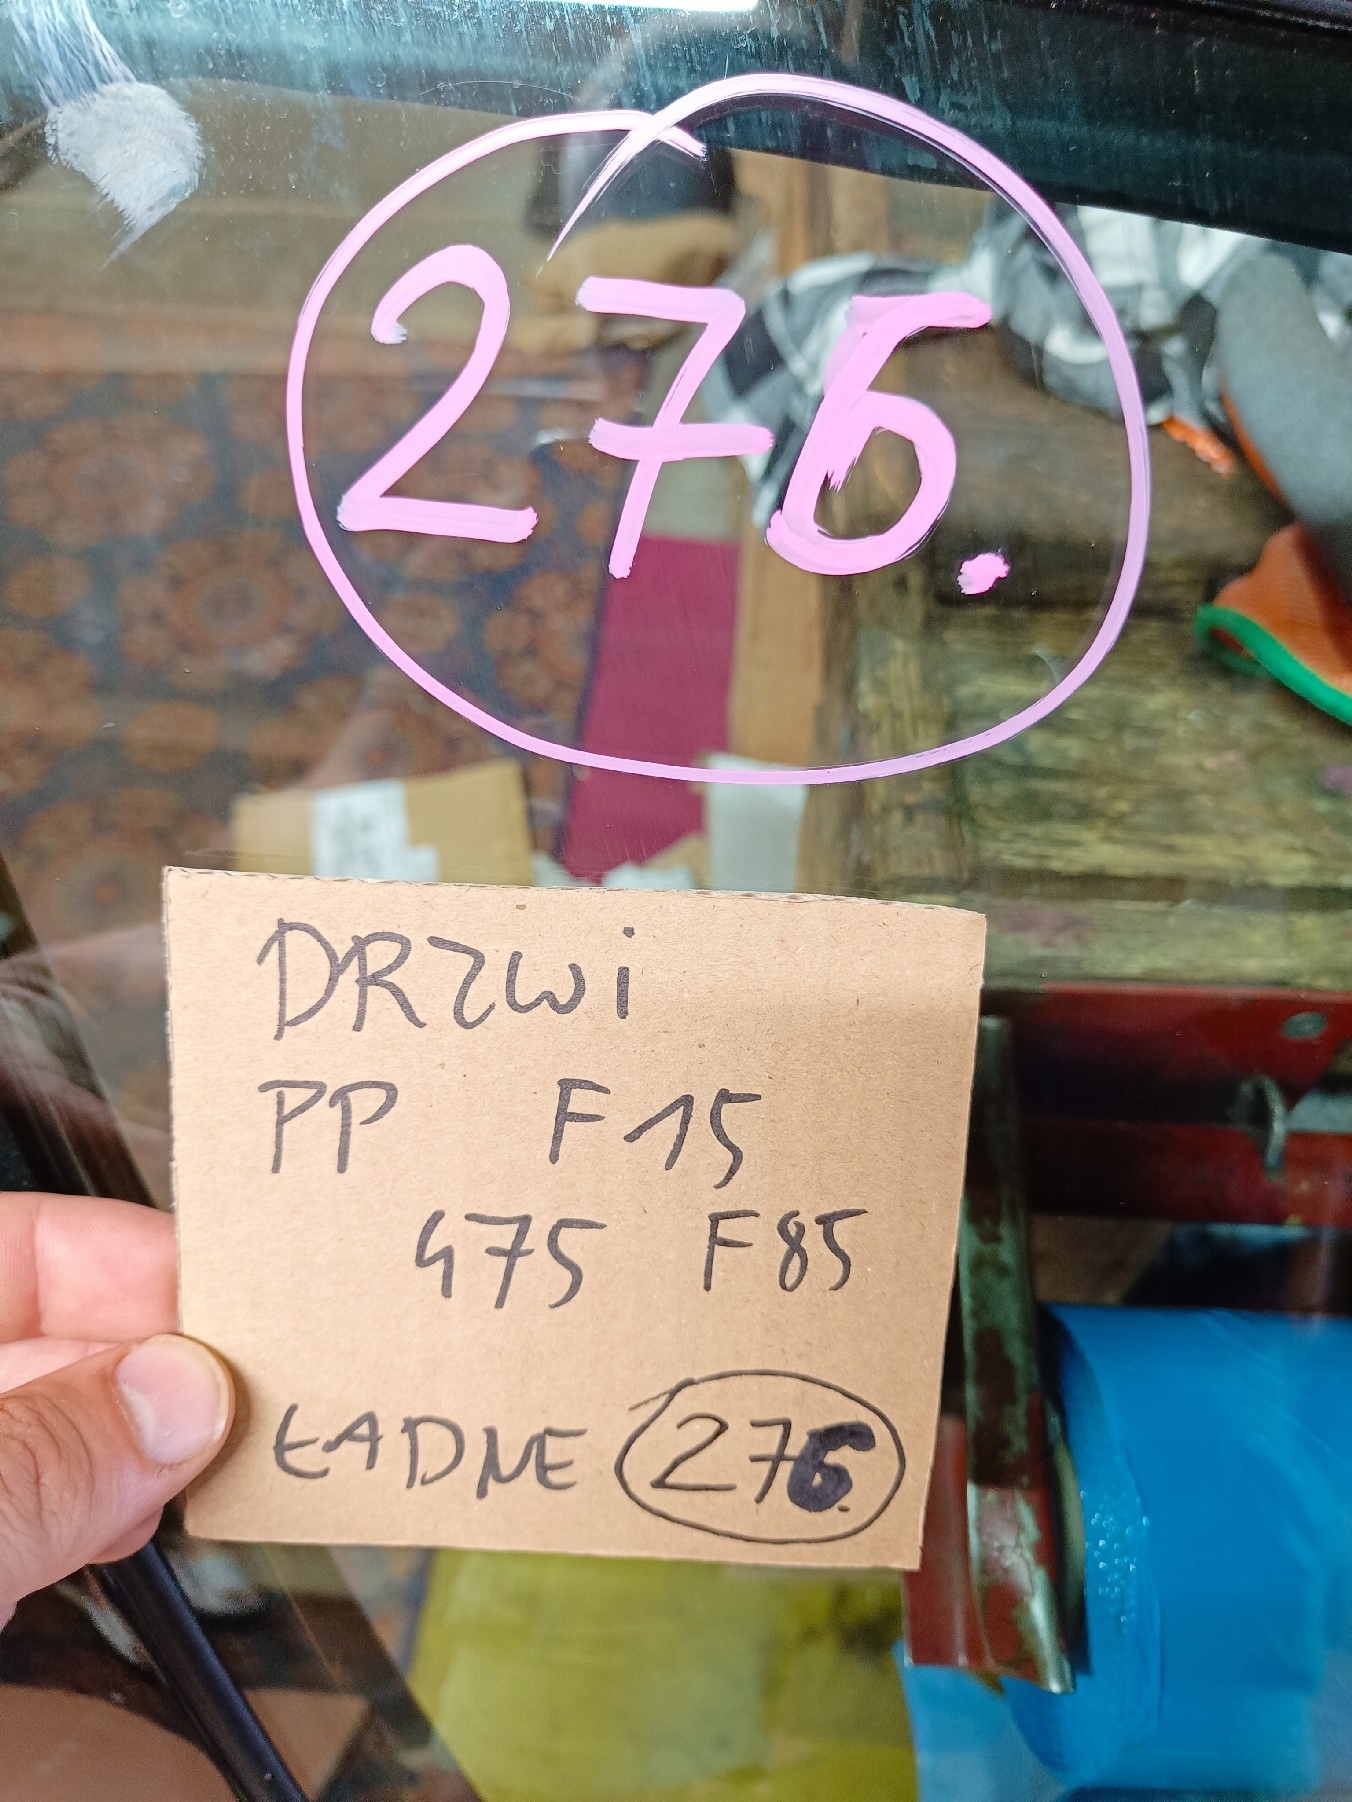 276.
DRZWI
PP F15
475 F85
ŁADNE 276.